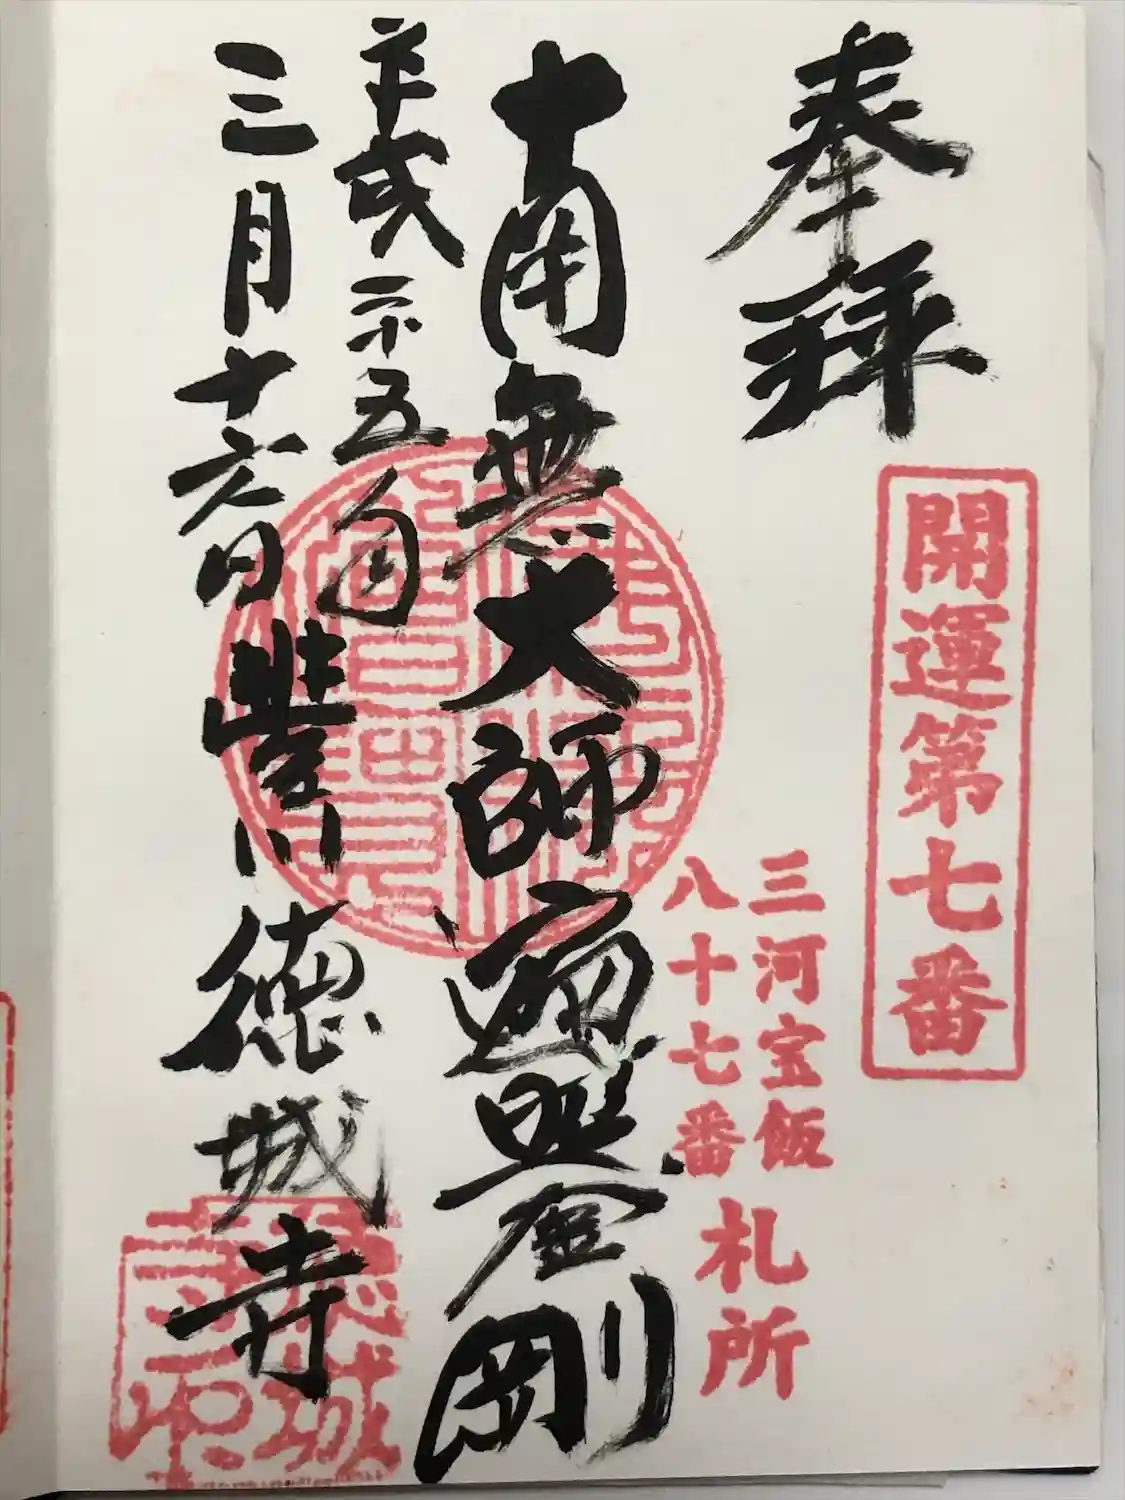 奉拝
開運第七番
三河宝飯
八十七番
札所
南無大師遍照金剛
平成二十五年
三月十六日
豊川 徳城寺
徳城寺印